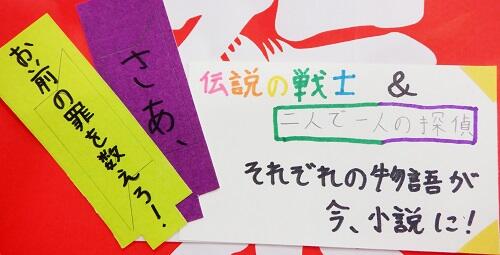 さあ、
お前の罪を数えろ！
伝説の戦士 &
二人で一人の探偵
それぞれの物語が
今、小説に！